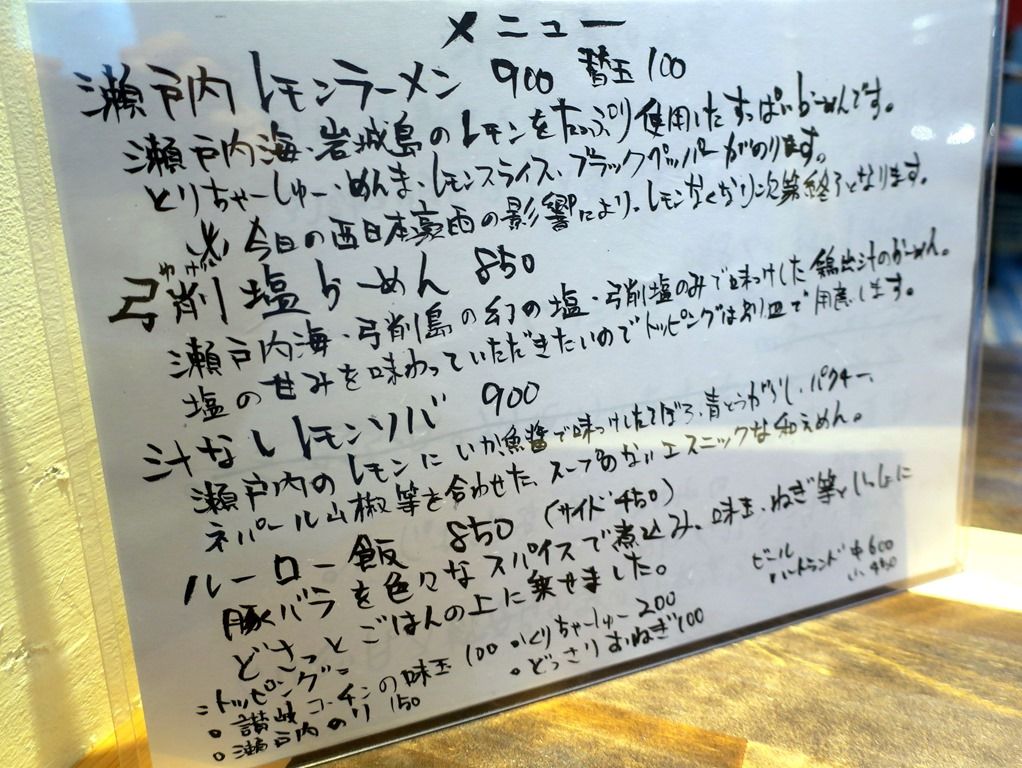 メニュー
瀬戸内レモンラーメン 900 替玉100
瀬戸内海・岩城島のレモンをたっぷり使用したすっぱいらーめんです。
とりちゃーしゅー、めんま、レモンスライス、ブラックペッパーがのります。
※今日の西日本豪雨の影響により、レモンなくなり次第終了となります。
ゆげ
弓削塩らーめん 850
瀬戸内海・弓削島の幻の塩・弓削塩のみで味つけした鶏出汁のらーめん。
塩の甘みを味わっていただきたいのでトッピングは別皿で用意します。
汁なしレモンソバ 900
瀬戸内のレモンにいか魚醤で味つけしたそぼろ、青とうがらし、パクチー、
ネパール山椒等を合わせた、スープのないエスニックな和えめん。
ルーロー飯 850 (サイド450)
豚バラを色々なスパイスで煮込み、味玉、ねぎ等といっしょに
どさっとごはんの上に乗せました。
ビール
ハートランド 中600
小450
=トッピング=
。讃岐コーチンの味玉 100 。とりちゃーしゅー200
。瀬戸内のり 150 。どっさりおねぎ100